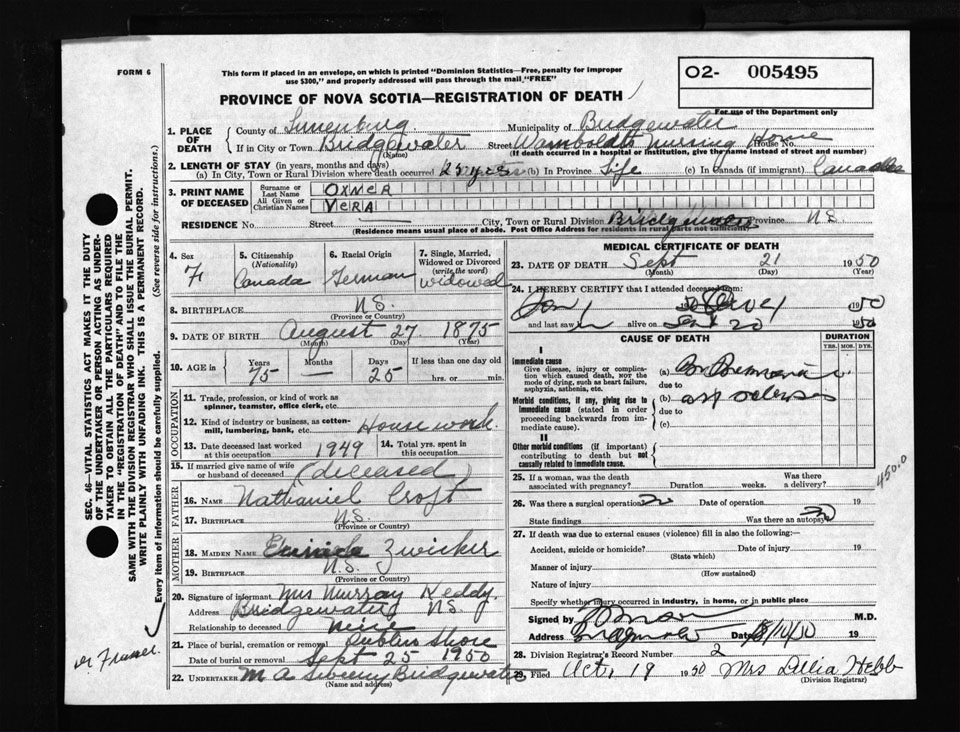 FORM 6
This form if placed in an envelope, on which is printed "Dominion Statistics—Free, penalty for improper use $300," and properly addressed will pass through the mail "FREE"
O2- 005495
For use of the Department only
PROVINCE OF NOVA SCOTIA—REGISTRATION OF DEATH
1. PLACE OF DEATH
County of Lunenburg Municipality of Bridgewater
If in City or Town Bridgewater (Name) Street Wamboldts Nursing Home House No.
(If death occurred in a hospital or institution, give the name instead of street and number)
2. LENGTH OF STAY (in years, months and days)
(a) In City, Town or Rural Division where death occurred 25 yrs (b) In Province Life (c) In Canada (if immigrant)
3. PRINT NAME OF DECEASED
Surname or Last Name OXNER
All Given or Christian Names VERA
RESIDENCE No. Street City, Town or Rural Division Bridgewater Province N.S.
(Residence means usual place of abode. Post Office Address for residents in rural parts not sufficient)
4. Sex F
5. Citizenship (Nationality) Canada
6. Racial Origin German
7. Single, Married, Widowed or Divorced (write the word) widowed
8. BIRTHPLACE N.S. (Province or Country)
9. DATE OF BIRTH August 27 1875 (Month) (Day) (Year)
10. AGE in Years 75 Months — Days 25 If less than one day old hrs. or min.
OCCUPATION
11. Trade, profession, or kind of work as spinner, teamster, office clerk, etc.
12. Kind of industry or business, as cotton-mill, lumbering, bank, etc. House work
13. Date deceased last worked at this occupation 1949
14. Total yrs. spent in this occupation
15. If married give name of wife or husband of deceased (deceased)
FATHER
16. Name Nathaniel Croft
17. BIRTHPLACE N.S. (Province or Country)
MOTHER
18. MAIDEN NAME Zwicker
19. BIRTHPLACE N.S. (Province or Country)
20. Signature of informant Mrs Murray Keddy
Address Bridgewater N.S.
Relationship to deceased niece
21. Place of burial, cremation or removal Publics Shore
Date of burial or removal Sept 25 1950
22. UNDERTAKER M A Bridgewater
(Name and address)
MEDICAL CERTIFICATE OF DEATH
23. DATE OF DEATH Sept 21 1950 (Month) (Day) (Year)
24. I HEREBY CERTIFY that I attended deceased from:
1950
and last saw h alive on Sept 20 1950
CAUSE OF DEATH
DURATION
YRS. MOS. DYS.
I
Immediate cause
Give disease, injury or complication which caused death, NOT the mode of dying, such as heart failure, asphyxia, asthenia, etc.
(a)
due to
Morbid conditions, if any, giving rise to immediate cause (stated in order proceeding backwards from immediate cause).
(b)
due to
(c)
II
Other morbid conditions (if important) contributing to death but not causally related to immediate cause.
450.0
25. If a woman, was the death associated with pregnancy? Duration weeks. Was there a delivery?
26. Was there a surgical operation no Date of operation 19
State findings Was there an autopsy no
27. If death was due to external causes (violence) fill in also the following:—
Accident, suicide or homicide? (State which) Date of injury 19
Manner of injury (How sustained)
Nature of injury
Specify whether injury occurred in industry, in home, or in public place
Signed by M.D.
Address Date 8/10/50 19
28. Division Registrar's Record Number 2
29. Filed Oct, 19 1950 Mrs Dellia Hebb
(Division Registrar)
SEC. 46—VITAL STATISTICS ACT MAKES IT THE DUTY OF THE UNDERTAKER OR PERSON ACTING AS UNDERTAKER TO OBTAIN ALL THE PARTICULARS REQUIRED IN THE "REGISTRATION OF DEATH" AND TO FILE THE SAME WITH THE DIVISION REGISTRAR WHO SHALL ISSUE THE BURIAL PERMIT.
WRITE PLAINLY WITH UNFADING INK. THIS IS A PERMANENT RECORD.
Every item of information should be carefully supplied. (See reverse side for instructions.)